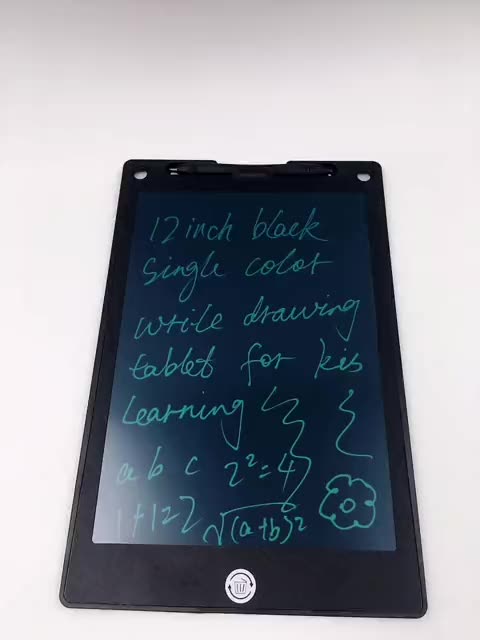 12 inch black
single color
write drawing
tablet for kis
learning
a b c 2²=4
1+1=2 √(a+b)²